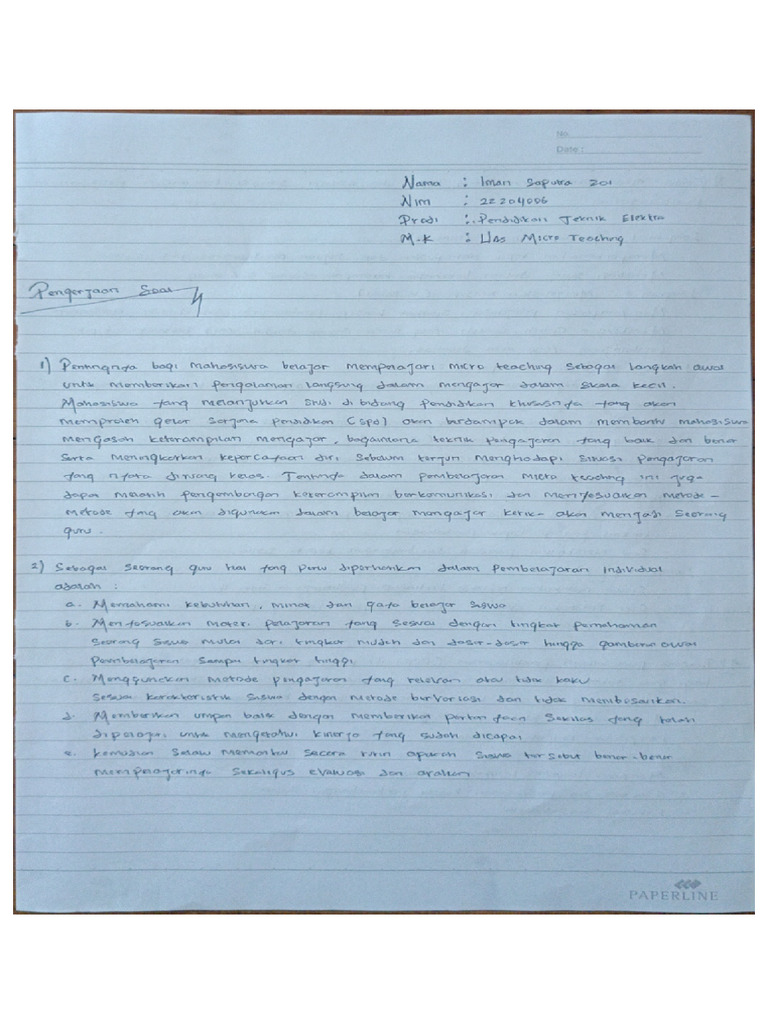 No.
Date :
Nama : Iman Saputra Zai
Nim : 22204006
Prodi : Pendidikan Teknik Elektro
M-K : UAS Micro Teaching
Pengerjaan Soal
1) Pentingnya bagi mahasiswa belajar mempelajari micro teaching sebagai langkah awal
untuk memberikan pengalaman langsung dalam mengajar dalam skala kecil.
Mahasiswa yang melanjutkan studi di bidang pendidikan khususnya yang akan
memproleh gelar sarjana pendidikan (spd) akan berdampak dalam membantu mahasiswa
mengasah keterampilan mengajar, bagaimana teknik pengajaran yang baik dan benar
serta meningkatkan kepercayaan diri sebelum terjun menghadapi situasi pengajaran
yang nyata diruang kelas. Tentunya dalam pembelajaran micro teaching ini juga
dapat melatih pengembangan keterampilan berkomunikasi dan menyesuaikan metode-
metode yang akan digunakan dalam belajar mengajar ketika akan menjadi seorang
guru.
2) Sebagai seorang guru hal yang perlu diperhatikan dalam pembelajaran individual
adalah :
a. Memahami kebutuhan, minat dan gaya belajar siswa
b. Menyesuaikan materi pelajaran yang sesuai dengan tingkat pemahaman
seorang siswa mulai dari tingkat mudah dan dasar-dasar hingga gambaran awal
pembelajaran sampai tingkat tinggi
c. Menggunakan metode pengajaran yang relevan atau tidak kaku
sesuai karakteristik siswa dengan metode bervariasi dan tidak membosankan.
d. Memberikan umpan balik dengan memberikan pertanyaan sekilas yang telah
dipelajari untuk mengetahui kinerja yang sudah dicapai
e. Kemudian selalu memantau secara rutin apakah siswa tersebut benar-benar
mempelajarinya sekaligus evaluasi dan arahan
PAPERLINE